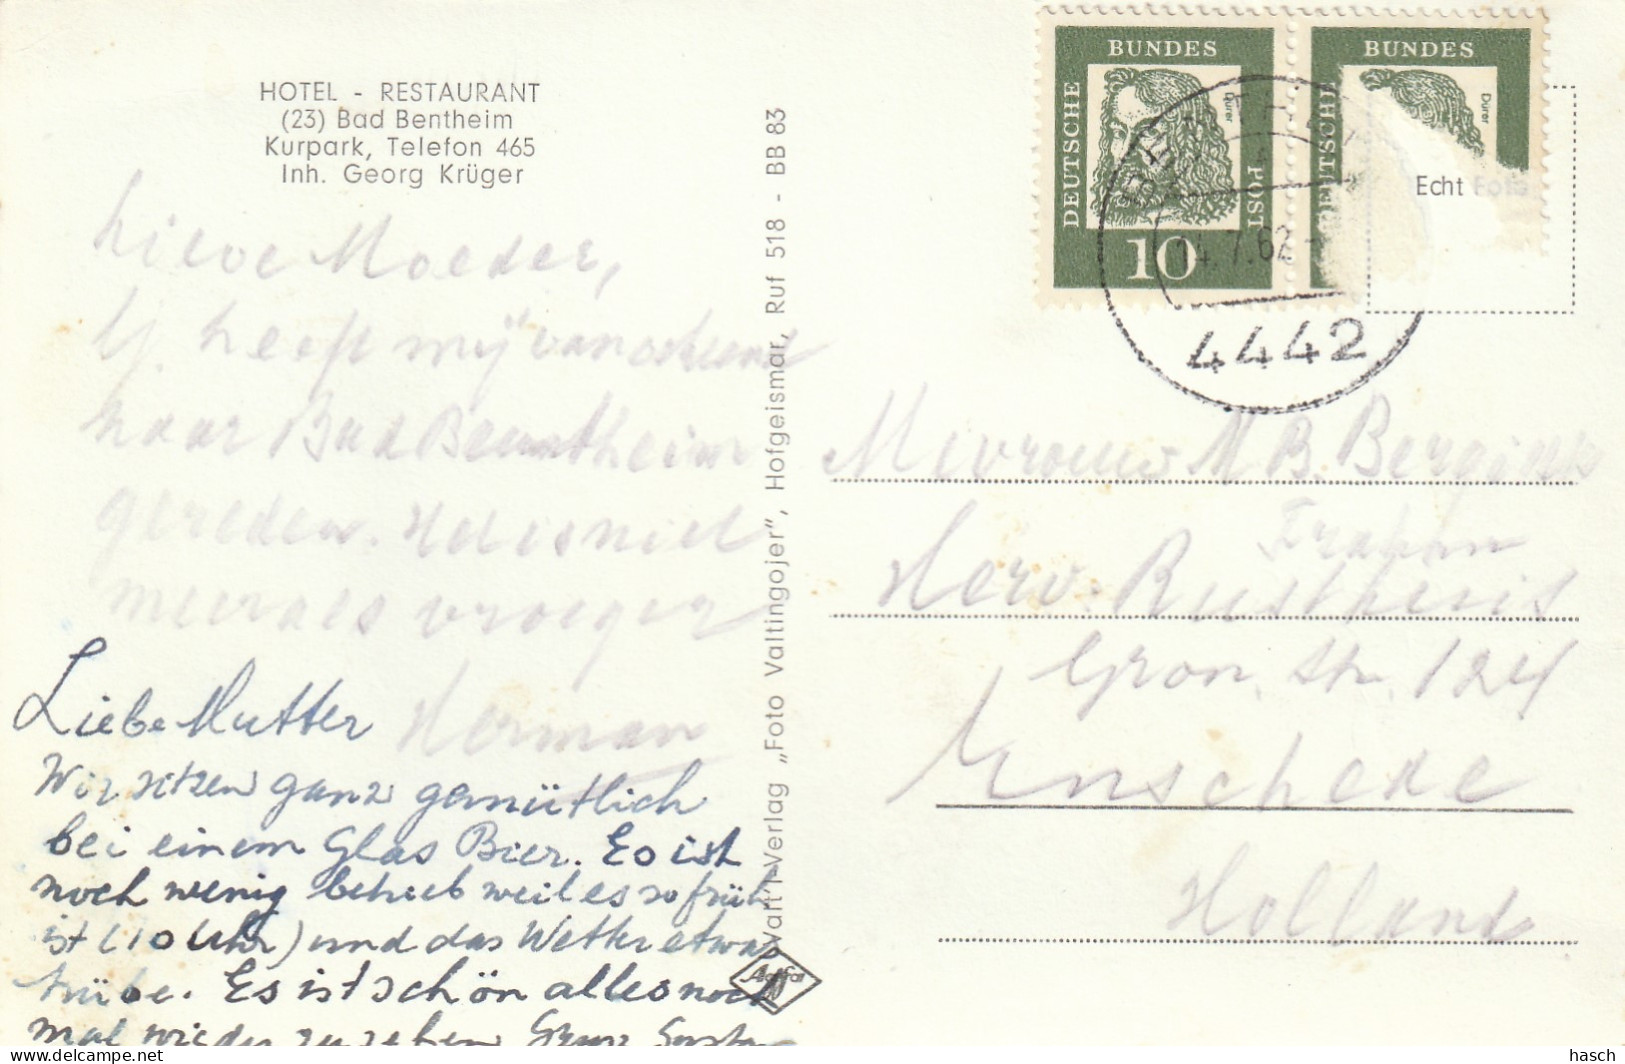 HOTEL - RESTAURANT
(23) Bad Bentheim
Kurpark, Telefon 465
Inh. Georg Krüger
Lieve Moeder,
heeft mij van
naar Bad Bentheim
gereden. Het is niet
meer als vroeger
Herman
Liebe Mutter
Wir sitzen ganz gemütlich
bei einem Glas Bier. Es ist
noch wenig betrieb weil es so früh
ist (10 Uhr) und das Wetter etwas
trübe. Es ist schön alles noch
mal wieder zu sehen
„Vali"-Verlag „Foto Valtingojer", Hofgeismar, Ruf 518 - BB 83
Agfa
BUNDES
DEUTSCHE
POST
Dürer
10
BUNDES
DEUTSCHE
Dürer
14.7.62
4442
Echt Foto
Mevrouw
Herv. Rusthuis
Gron. str. 124
Enschede
Holland
delcampe.net
hasch